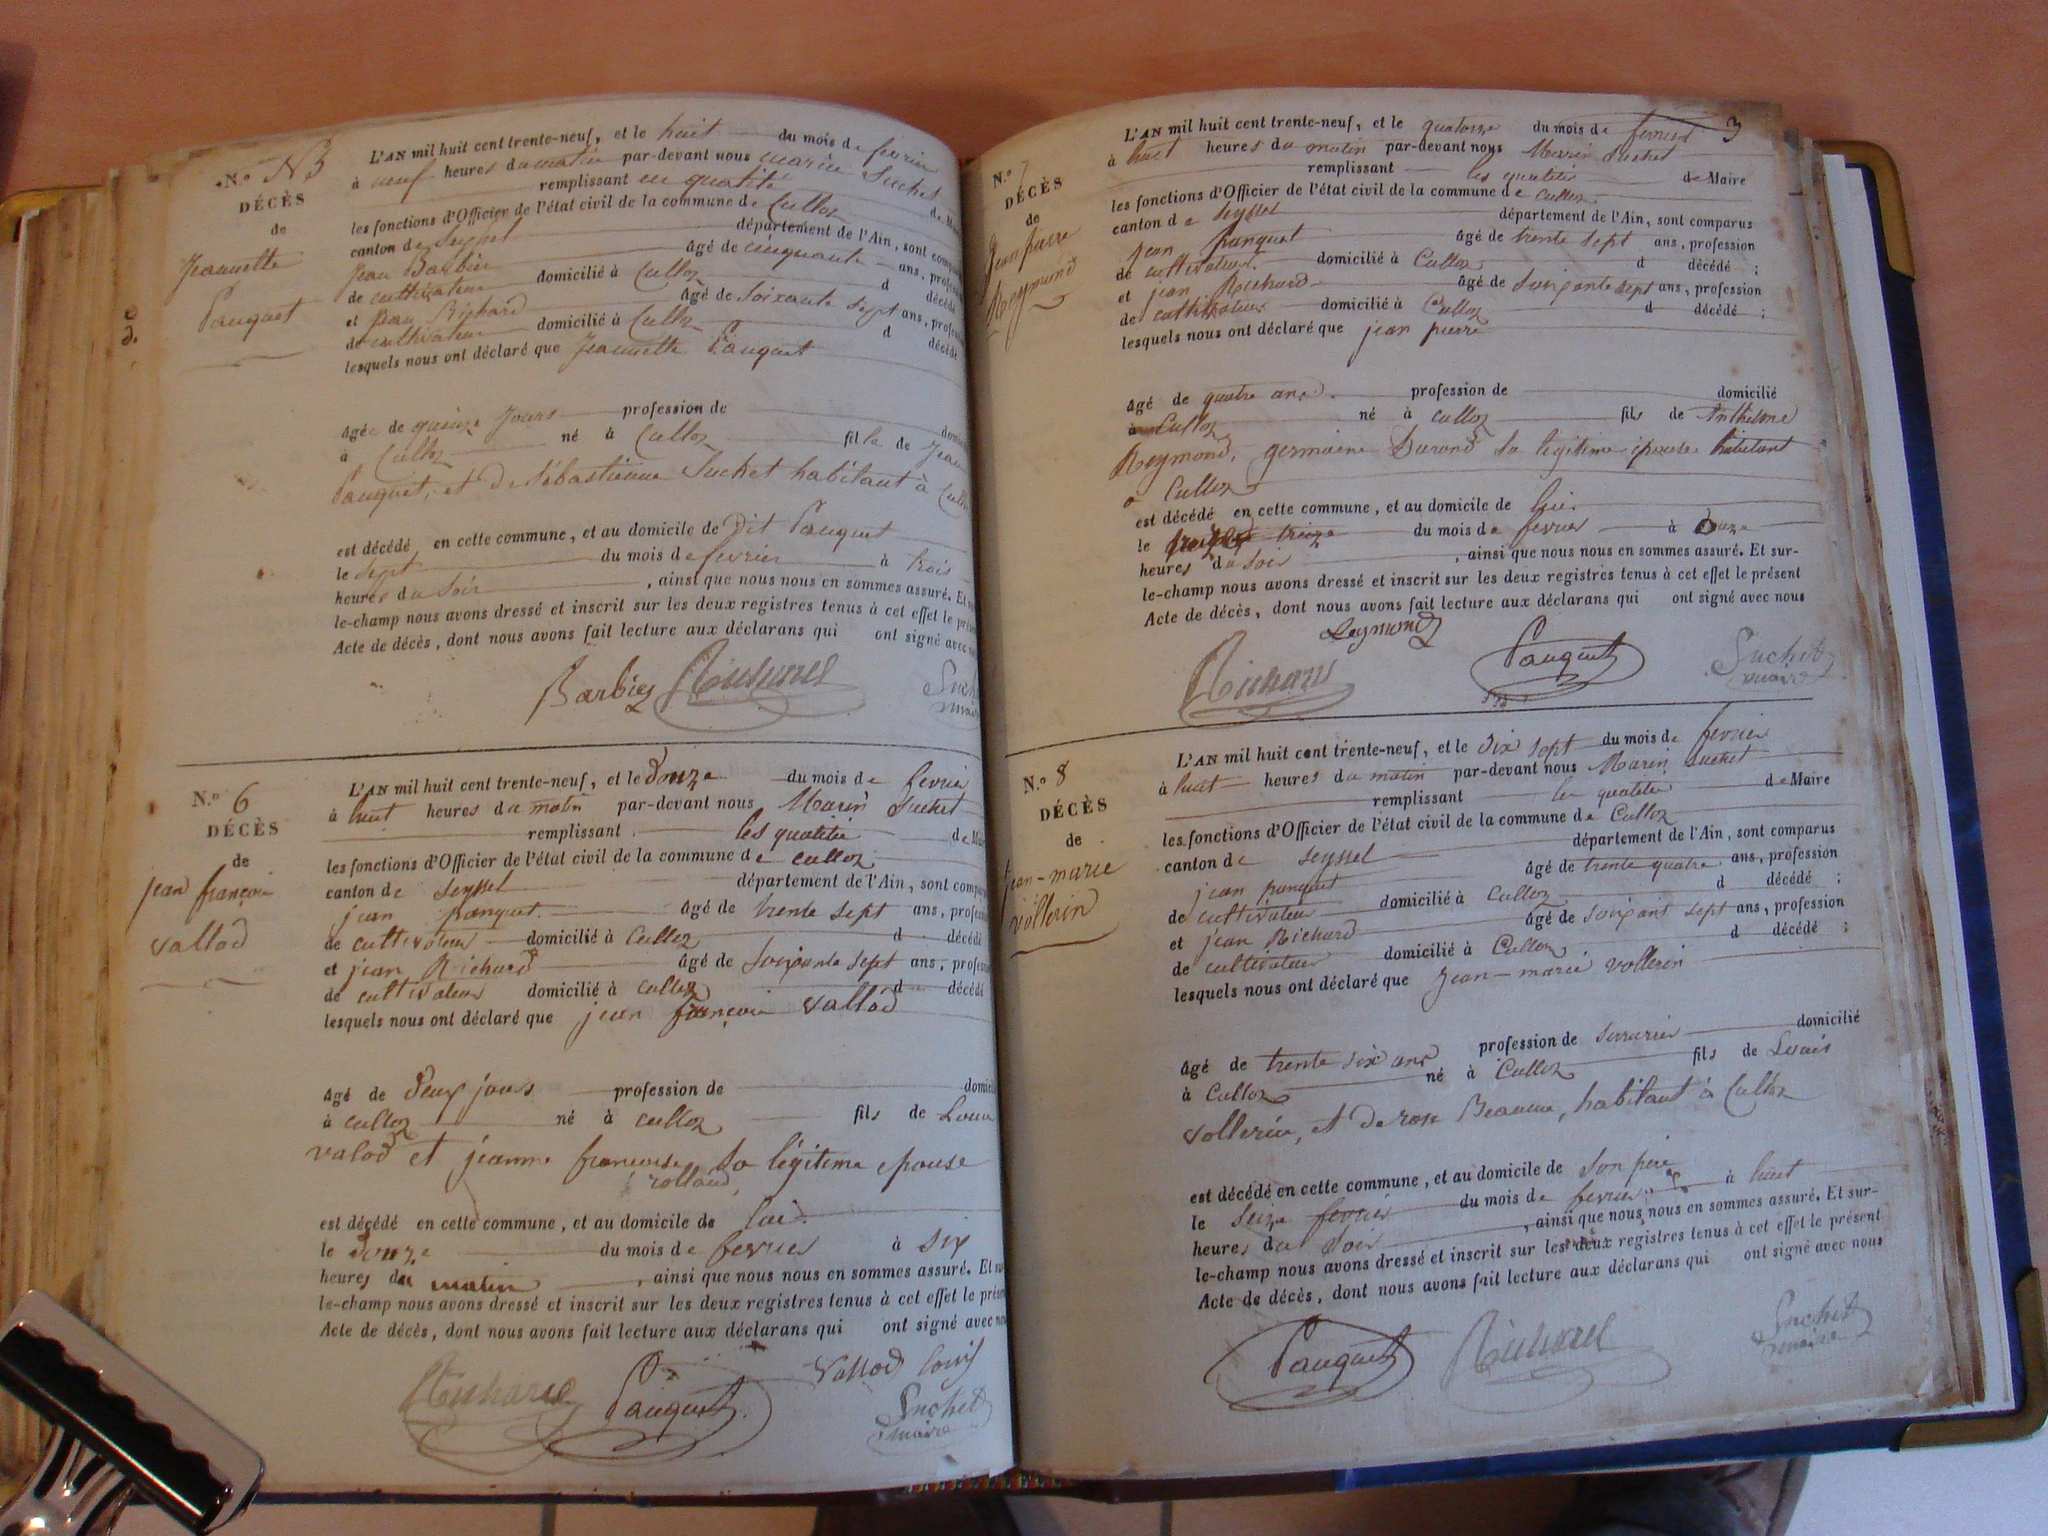 N.o
DÉCÈS
de
Jeannette
Pauquet
L'AN mil huit cent trente-neuf, et le huit du mois de fevrier
à neuf heures du matin par-devant nous marin Suchet
remplissant en qualité de M
les fonctions d'Officier de l'état civil de la commune de Culloz
canton de Seyssel département de l'Ain, sont comp
Jean Barbier âgé de cinquante ans, profe
de cultivateur domicilié à Culloz d décédé
et Jean Richard âgé de soixante sept ans, profe
de cultivateur domicilié à Culloz d décédé
lesquels nous ont déclaré que Jeannette Pauquet
âgée de quinze jours profession de domi
à Culloz né à Culloz fille de Jean
Pauquet, et de Sébastienne Suchet habitant à Culloz
est décédé en cette commune, et au domicile de dit Pauquet
le sept du mois de fevrier à trois
heures du soir, ainsi que nous nous en sommes assuré. Et
le-champ nous avons dressé et inscrit sur les deux registres tenus à cet effet le prés
Acte de décès, dont nous avons fait lecture aux déclarans qui ont signé avec
Barbier Richard Such
maire
N.o 6
DÉCÈS
de
jean françois
vallod
L'AN mil huit cent trente-neuf, et le douze du mois de fevrier
à huit heures du matin par-devant nous Marin Suchet
remplissant les qualités de M
les fonctions d'Officier de l'état civil de la commune de culloz
canton de Seyssel département de l'Ain, sont comp
jean panquet. âgé de trente sept ans, profes
de cultivateur domicilié à Culloz d décédé
et jean Richard âgé de soixante sept ans, profes
de cultivateur domicilié à culloz d décédé
lesquels nous ont déclaré que jean françois vallod
âgé de deux jours profession de domici
à culloz né à culloz fils de Louis
valod et jeanne francoise sa légitime epouse
rolland,
est décédé en cette commune, et au domicile de lui.
le douze du mois de fevrier à six
heures du matin, ainsi que nous nous en sommes assuré. Et
le-champ nous avons dressé et inscrit sur les deux registres tenus à cet effet le prése
Acte de décès, dont nous avons fait lecture aux déclarans qui ont signé avec no
Richard Pauquet Vallod louis
Suchet
maire
3
N.o 7
DÉCÈS
de
Jean pierre
Reymond
L'AN mil huit cent trente-neuf, et le quatorze du mois de fevrier
à huit heures du matin par-devant nous Marin Suchet
remplissant les qualités de Maire
les fonctions d'Officier de l'état civil de la commune de culloz
canton de Seyssel département de l'Ain, sont comparus
jean panquet âgé de trente sept ans, profession
de cultivateur. domicilié à Culloz d décédé ;
et jean Richard âgé de soixante sept ans, profession
de cultivateur domicilié à Culloz d décédé ;
lesquels nous ont déclaré que jean pierre
âgé de quatre ans. profession de domicilié
à Culloz né à culloz fils de Anthelme
Reymond, germaine Durand sa légitime épouse habitant
a Culloz
est décédé en cette commune, et au domicile de lui.
le treize du mois de fevrier à onze
heures du soir, ainsi que nous nous en sommes assuré. Et sur-
le-champ nous avons dressé et inscrit sur les deux registres tenus à cet effet le présent
Acte de décès, dont nous avons fait lecture aux déclarans qui ont signé avec nous
Reymond
Richard Pauquet Suchet
maire
N.o 8
DÉCÈS
de
jean-marie
vollerin
L'AN mil huit cent trente-neuf, et le dix sept du mois de fevrier
à huit heures du matin par-devant nous Marin Suchet
remplissant les qualités de Maire
les fonctions d'Officier de l'état civil de la commune de Culloz
canton de Seyssel département de l'Ain, sont comparus
jean panquet âgé de trente quatre ans, profession
de cultivateur domicilié à Culloz d décédé ;
et jean Richard âgé de soixante sept ans, profession
de cultivateur domicilié à Culloz d décédé ;
lesquels nous ont déclaré que Jean-marie vollerin
âgé de trente six ans profession de serrurier domicilié
à Culloz né à Culloz fils de Louis
vollerin, et de rose Beaume, habitant à Culloz
est décédé en cette commune, et au domicile de son père
le seize fevrier du mois de fevrier à huit
heures du soir, ainsi que nous nous en sommes assuré. Et sur-
le-champ nous avons dressé et inscrit sur les deux registres tenus à cet effet le présent
Acte de décès, dont nous avons fait lecture aux déclarans qui ont signé avec nous
Pauquet Richard Suchet
maire